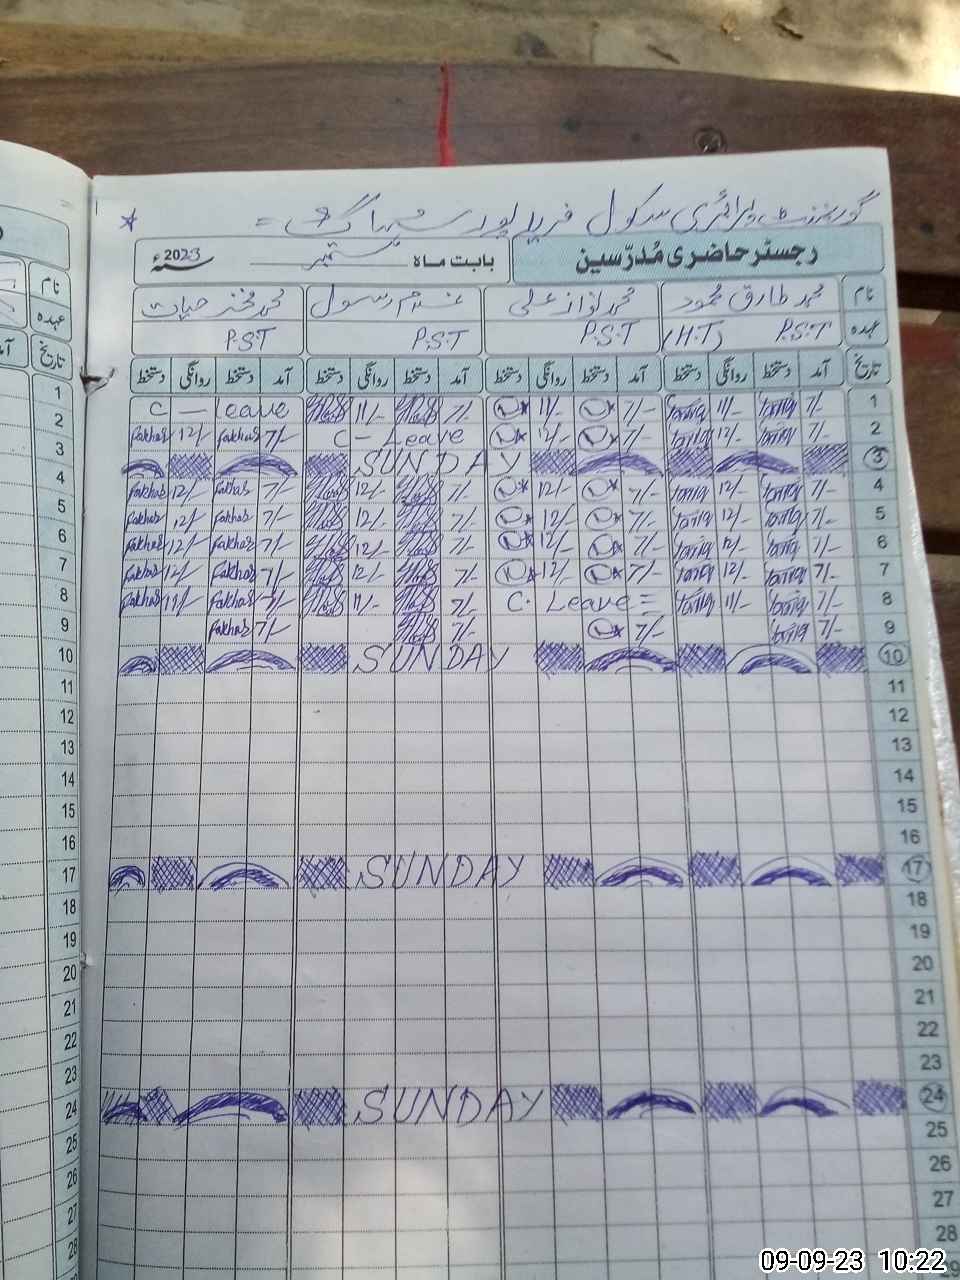 گورنمنٹ پرائمری سکول فرید پور سہاگ =
رجسٹر حاضری مُدرّسین بابت ماہ ستمبر سنہ 2023ء
نام محمد طارق محمود محمد نواز علی غلام رسول محمد فخر حیات
عہدہ P.S.T (H.T) P.S.T P.S.T P.S.T
تاریخ آمد دستخط روانگی دستخط آمد دستخط روانگی دستخط آمد دستخط روانگی دستخط آمد دستخط روانگی دستخط
C — Leave 11/- 7/- 11/- 7/- Tariq 11/- Tariq 7/- 1
Fakhar 12/- Fakhar 7/- C - Leave 12/- 7/- Tariq 12/- Tariq 7/- 2
SUNDAY 3
Fakhar 12/- Fakhar 7/- 12/- 7/- 12/- 7/- Tariq 12/- Tariq 7/- 4
Fakhar 12/- Fakhar 7/- 12/- 7/- 12/- 7/- Tariq 12/- Tariq 7/- 5
Fakhar 12/- Fakhar 7/- 12/- 7/- 12/- 7/- Tariq 12/- Tariq 7/- 6
Fakhar 12/- Fakhar 7/- 12/- 7/- 12/- 7/- Tariq 12/- Tariq 7/- 7
Fakhar 11/- Fakhar 7/- 11/- 7/- C. Leave = Tariq 11/- Tariq 7/- 8
Fakhar 7/- 7/- 7/- Tariq 7/- 9
SUNDAY 10
11
12
13
14
15
16
SUNDAY 17
18
19
20
21
22
23
SUNDAY 24
25
26
27
28
29
نام
عہدہ
تاریخ
1
2
3
4
5
6
7
8
9
10
11
12
13
14
15
16
17
18
19
20
21
22
23
24
25
26
27
28
09-09-23 10:22